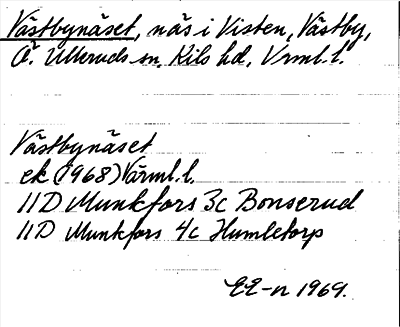 Västbynäset, näs i Visten, Västby,
Ö. Ulleruds sn, Kils hd, Vrml. l.
Västbynäset
ek (1968) Värml. l.
11D Munkfors 3c Bonserud
11D Munkfors 4c Humletorp
EE-n 1969.